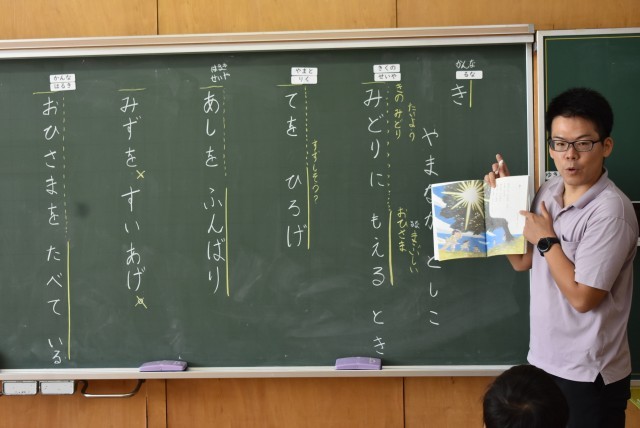 かんな
るな
き
やまなか としこ
たいよう
きの みどり
まぶしい
おひさま
きくの
せいや
みどりに もえる とき
やまと
りく
すずしそう?
てを ひろげ
せいト
あしを ふんばり
みずを すいあげ
かんな
はるき
おひさまを たべている